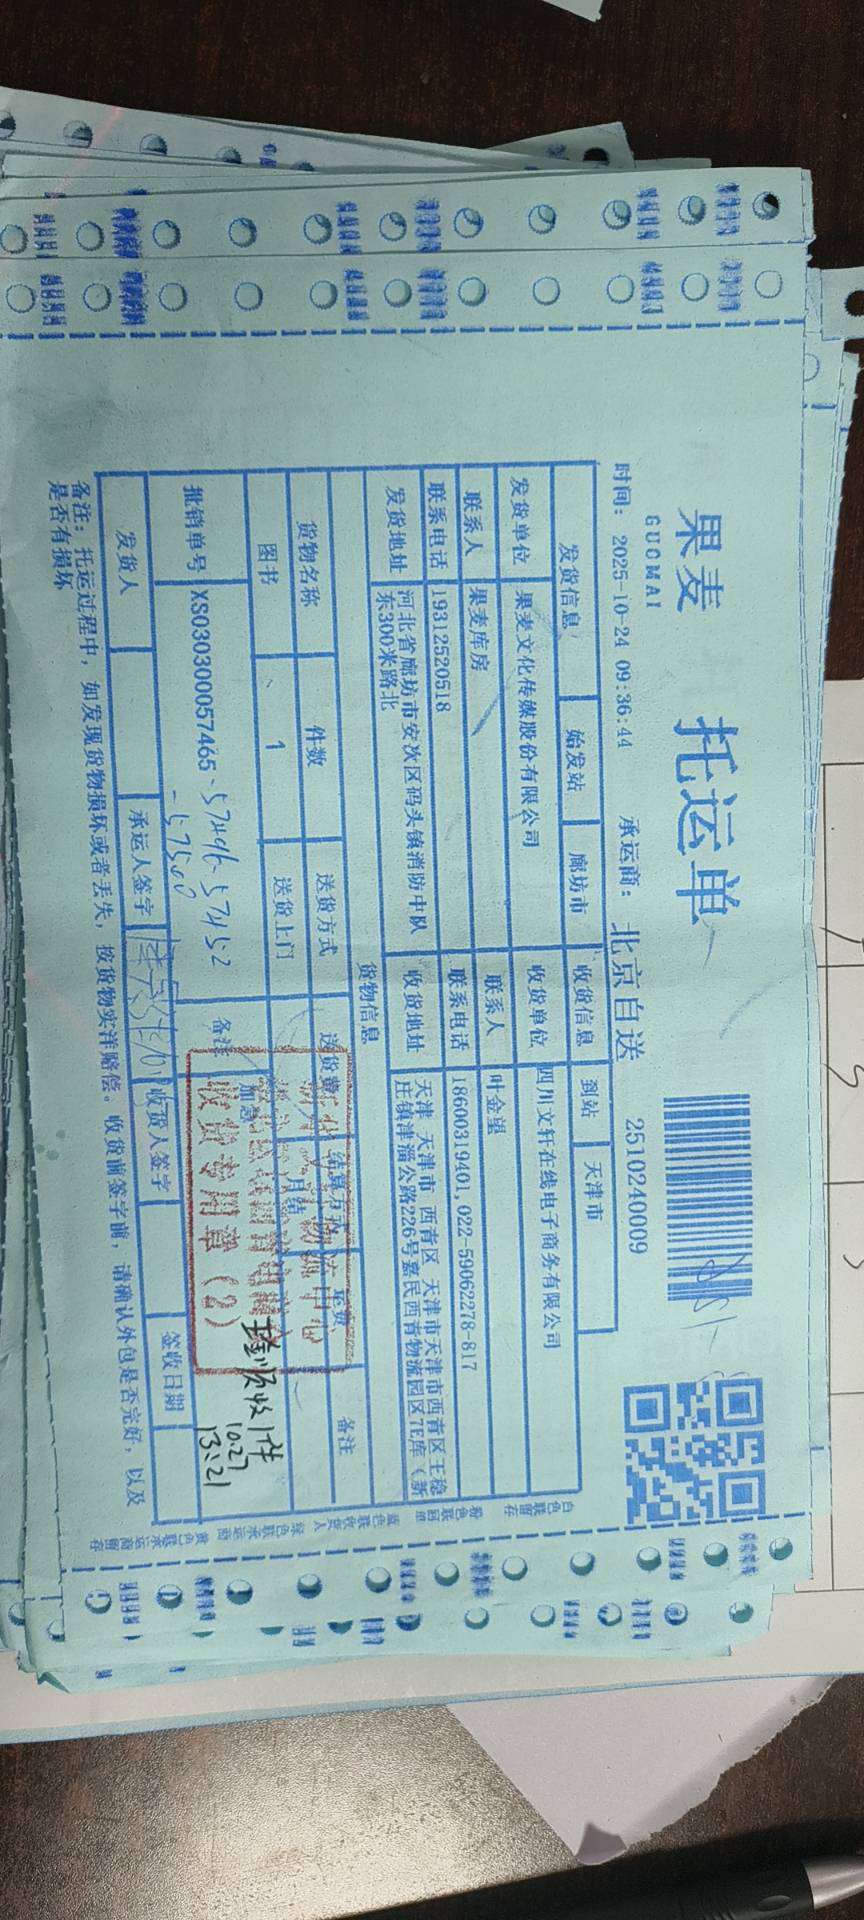 果麦 托运单
GUOMAI
时间：2025-10-24 09:36:44 承运商：北京自送 2510240009
发货信息 始发站 廊坊市 收货信息 到站 天津市
发货单位 果麦文化传媒股份有限公司 收货单位 四川文轩在线电子商务有限公司
联系人 果麦库房 联系人 叶金望
联系电话 19312520518 联系电话 18600319401,022-59062278-817
发货地址 河北省廊坊市安次区码头镇消防中队东300米路北 收货地址 天津 天津市 西青区 天津市天津市西青区王稳庄镇津淄公路226号嘉民西青物流园区7E库（新
货物信息
货物名称 件数 送货方式 送货费 结算方式 运费 备注
图书 1 送货上门 加急 月结
批销单号 XS030300057465 -57496-57452 备注
-57500
收货专用章（2）
收1件
10.27
13:21
发货人 承运人签字 收货人签字 签收日期
备注：托运过程中，如发现货物损坏或者丢失，按货物实洋赔偿。收货前签字前，请确认外包是否完好，以及
是否有损坏
白色联留存 粉色联回单 蓝色联收货人 绿色联承运商 黄色联承运商留存